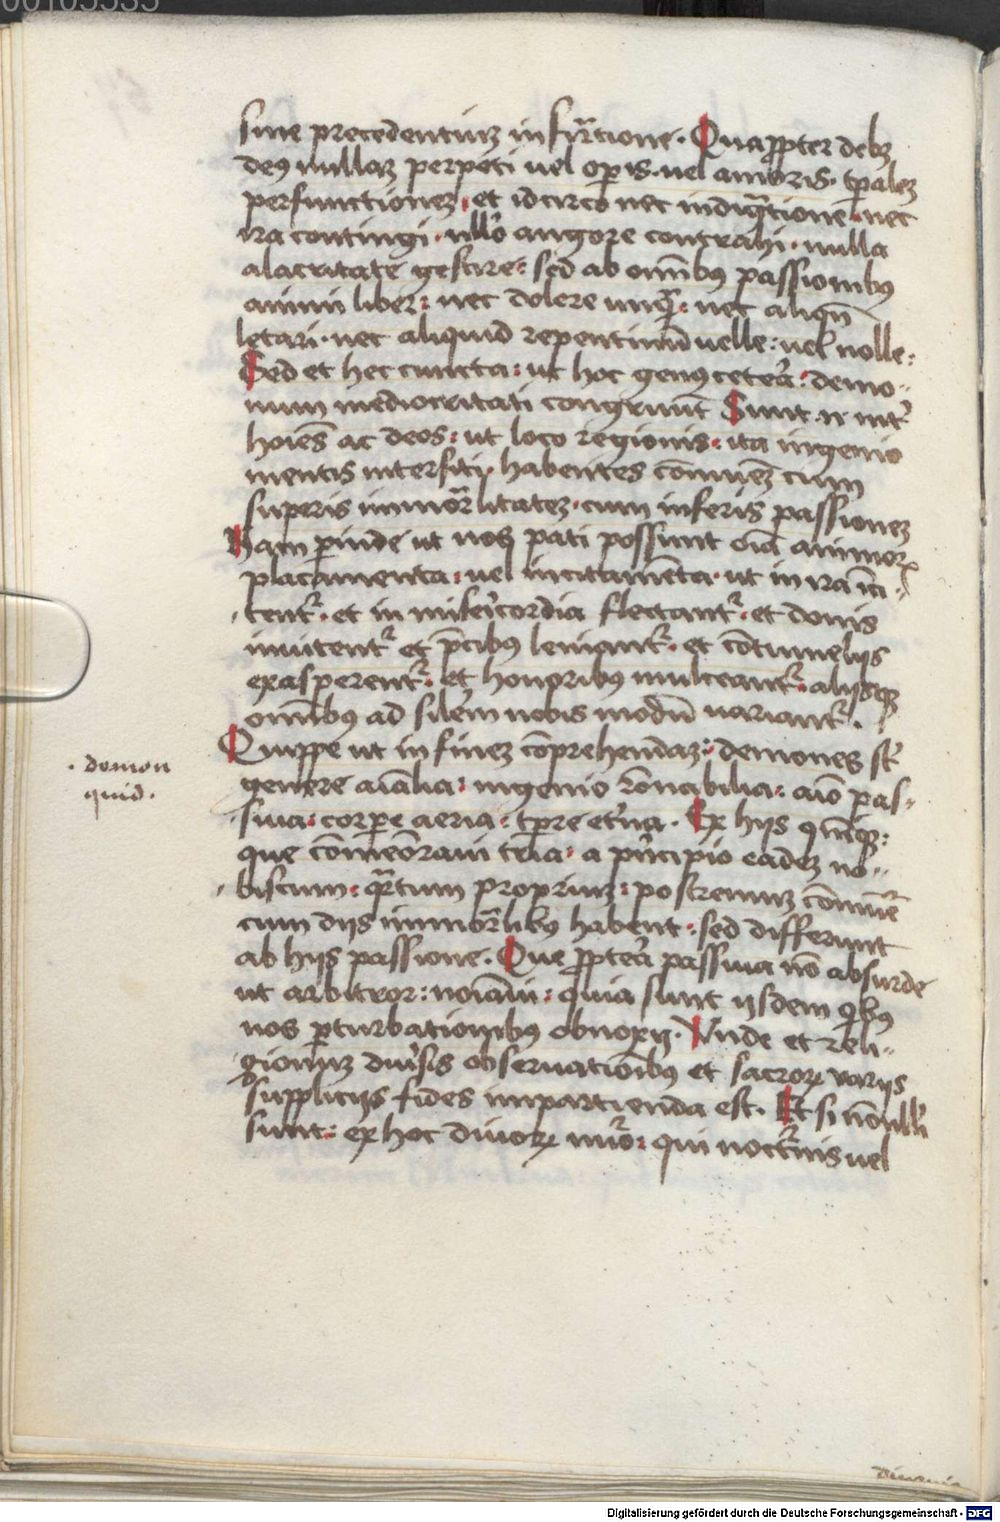 00105535
sine precedentium infirmatione. Quapropter debet
deus nullam perpeti uel operis uel amoris temporalem
perfunctionem. et idcirco nec indignatione. nec
ira contingi. nullo angore contrahi. nulla
alacritate gestire: sed ab omnibus passionibus
animi liber: nec dolere unquam: nec aliquando
letari. nec aliquid repentinum uelle: uel nolle:
Sed et hec cuncta: ut hoc genus cetera. demo-
num mediocritati congruunt Sunt enim inter
homines ac deos: ut loco regionis. ita ingenio
mentis intersiti. habentes communem cum
superis immortalitatem. cum inferis passionem
Nam perinde ut nos pati possunt omnia animorum
placamenta: uel incitamenta. ut in ira inci-
tentur. et in misericordia flectantur. et donis
inuitentur et precibus leniantur. et contumeliis
exasperentur. et honoribus mulceantur. aliisque
omnibus ad similem nobis modum uariantur.
Quippe ut in finem comprehendam: demones sunt
genere animalia: ingenio rationabilia: animo pas-
siua: corpore aeria: tempore eterna. Ex hiis quinque:
que commemoraui tria: a principio eadem no-
biscum: quartum proprium: postremum commune
cum diis immortalibus habent: sed differunt
ab hiis passione. Que propterea passiua non absurde
ut arbitror: nominaui: quia sunt iisdem quibus
nos perturbationibus obnoxii. Unde et reli-
gionum diuersis obseruationibus et sacrorum variis
suppliciis fides impartienda est. Et si nonnulli
sunt: ex hoc diuorum numero: qui nocturnis uel
demon
quid.
Digitalisierung gefördert durch die Deutsche Forschungsgemeinschaft - DFG